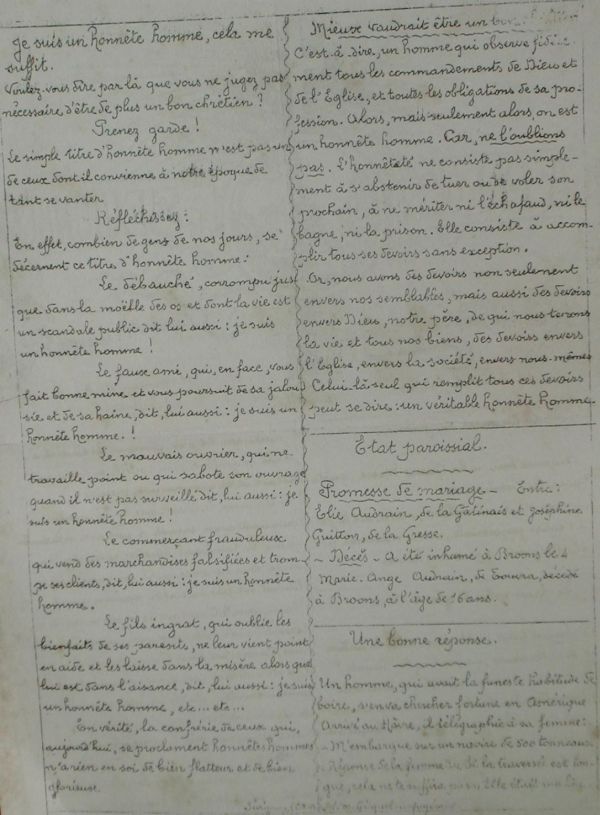 Je suis un honnête homme, cela me
suffit.
Voulez-vous dire par là que vous ne jugez pas
nécessaire d'être de plus un bon chrétien ?
Prenez garde !
Le simple titre d'honnête homme n'est pas un
de ceux dont il convienne à notre époque de
tant se vanter
Réfléchissez :
En effet, combien de gens de nos jours, se
décernent ce titre d'honnête homme :
Le débauché, corrompu jus
que dans la moëlle des os et dont la vie est
un scandale public dit lui aussi : je suis
un honnête homme !
Le faux ami, qui, en face, vous
fait bonne mine et vous poursuit de sa jalou
sie et de sa haine, dit, lui aussi : je suis un
honnête homme. !
Le mauvais ouvrier, qui ne
travaille point ou qui sabote son ouvrage
quand il n'est pas surveillé dit, lui aussi : je
suis un honnête homme !
Le commerçant frauduleux
qui vend des marchandises falsifiées et trom
pe ses clients, dit, lui aussi : je suis un honnête
homme.
Le fils ingrat, qui oublie les
bienfaits de ses parents, ne leur vient point
en aide et les laisse dans la misère alors que
lui est dans l'aisance, dit, lui aussi : je suis
un honnête homme, etc... etc...
En vérité, la confrérie de ceux qui,
aujourd'hui, se proclament honnêtes hommes
n'a rien en soi de bien flatteur et de bien
glorieux.
Mieux vaudrait être un bon
C'est à dire, un homme qui observe fidèle
ment tous les commandements de Dieu et
de l'Eglise, et toutes les obligations de sa pro-
fession. Alors, mais seulement alors, on est
un honnête homme. Car, ne l'oublions
pas. L'honnêteté ne consiste pas simple-
ment à s'abstenir de tuer ou de voler son
prochain, à ne mériter ni l'échafaud, ni le
bagne, ni la prison. Elle consiste à accom-
plir tous ses devoirs sans exception.
Or, nous avons des devoirs non seulement
envers nos semblables, mais aussi des devoirs
envers Dieu, notre père, de qui nous tenons
la vie et tous nos biens, des devoirs envers
l'Eglise, envers la société, envers nous-mêmes
Celui-là seul qui remplit tous ces devoirs
peut se dire : un véritable honnête homme.
Etat paroissial.
Promesse de mariage - Entre :
Elie Audrain, de la Gâtinais et Joséphine
Guitton, de la Gresse.
- Décès - A été inhumé à Broons le 4
Marie-Ange Audrain, de décédé
à Broons, à l'âge de 16 ans.
Une bonne réponse.
Un homme, qui avait la funeste habitude de
boire, s'en va chercher fortune en Amérique
Arrivé au Hâvre, il télégraphie à sa femme :
- M'embarque sur un navire de 500 tonneaux
- Réponse de la femme : Si la traversée est lon
gue, cela ne te suffira pas.